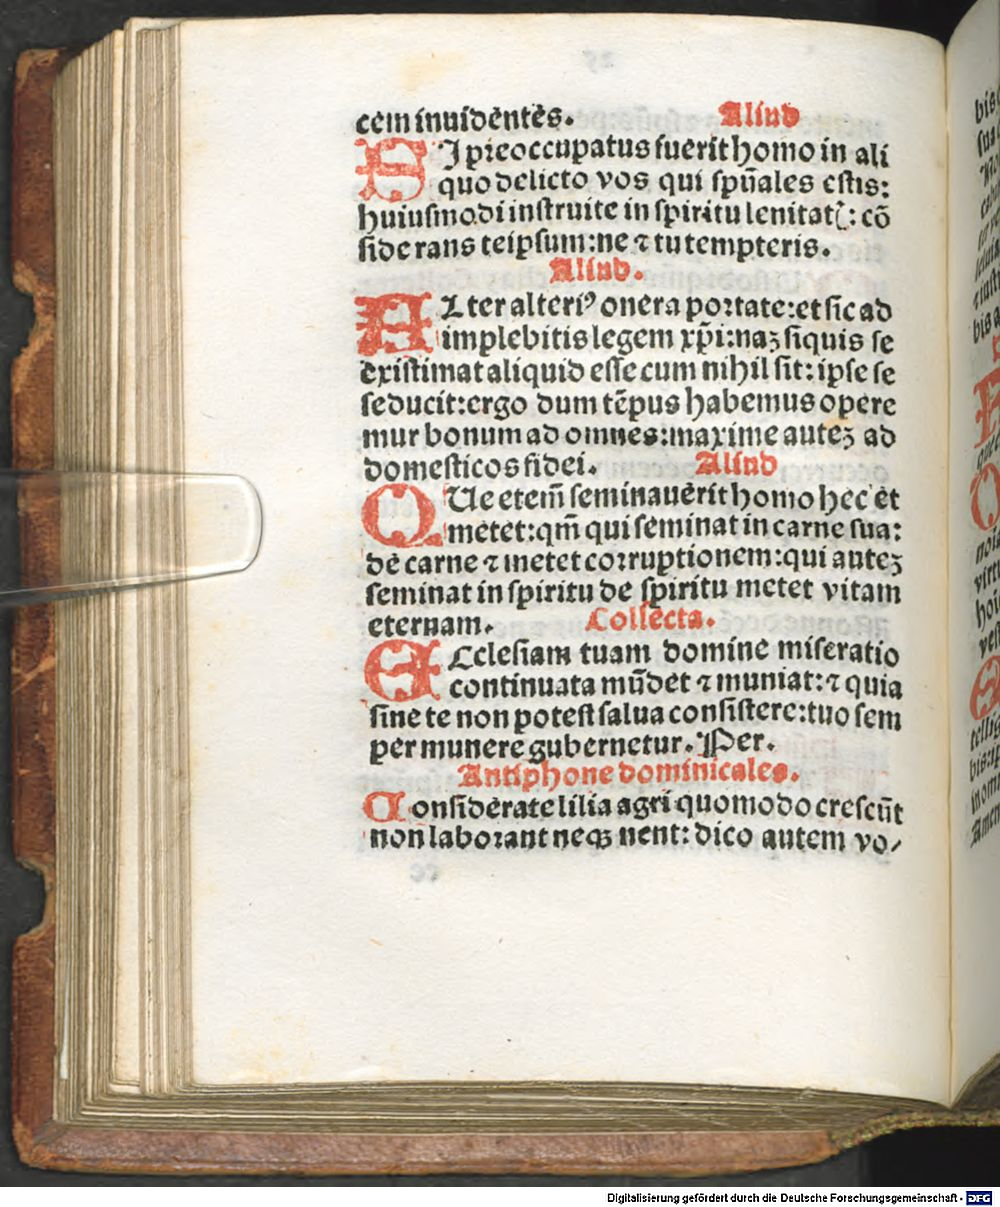 cem inuidentes. Aliud
SI preoccupatus fuerit homo in ali
quo delicto vos qui spūales estis:
huiusmodi instruite in spiritu lenitatꝭ: cō
siderans teipsum: ne ⁊ tu tempteris.
Aliud.
ALter alteriꝰ onera portate: et sic ad
implebitis legem xp̄i: naꝫ siquis se
existimat aliquid esse cum nihil sit: ipse se
seducit: ergo dum tēpus habemus opere
mur bonum ad omnes: maxime auteꝫ ad
domesticos fidei. Aliud
QUe etem̄ seminauerit homo hec et
metet: qm̄ qui seminat in carne sua:
de carne ⁊ metet corruptionem: qui auteꝫ
seminat in spiritu de spiritu metet vitam
eternam. Collecta.
ECclesiam tuam domine miseratio
continuata mūdet ⁊ muniat: ⁊ quia
sine te non potest salua consistere: tuo sem
per munere gubernetur. Per.
Antiphone dominicales.
Considerate lilia agri quomodo crescūt
non laborant neqꝫ nent: dico autem vo/
Digitalisierung gefördert durch die Deutsche Forschungsgemeinschaft - DFG